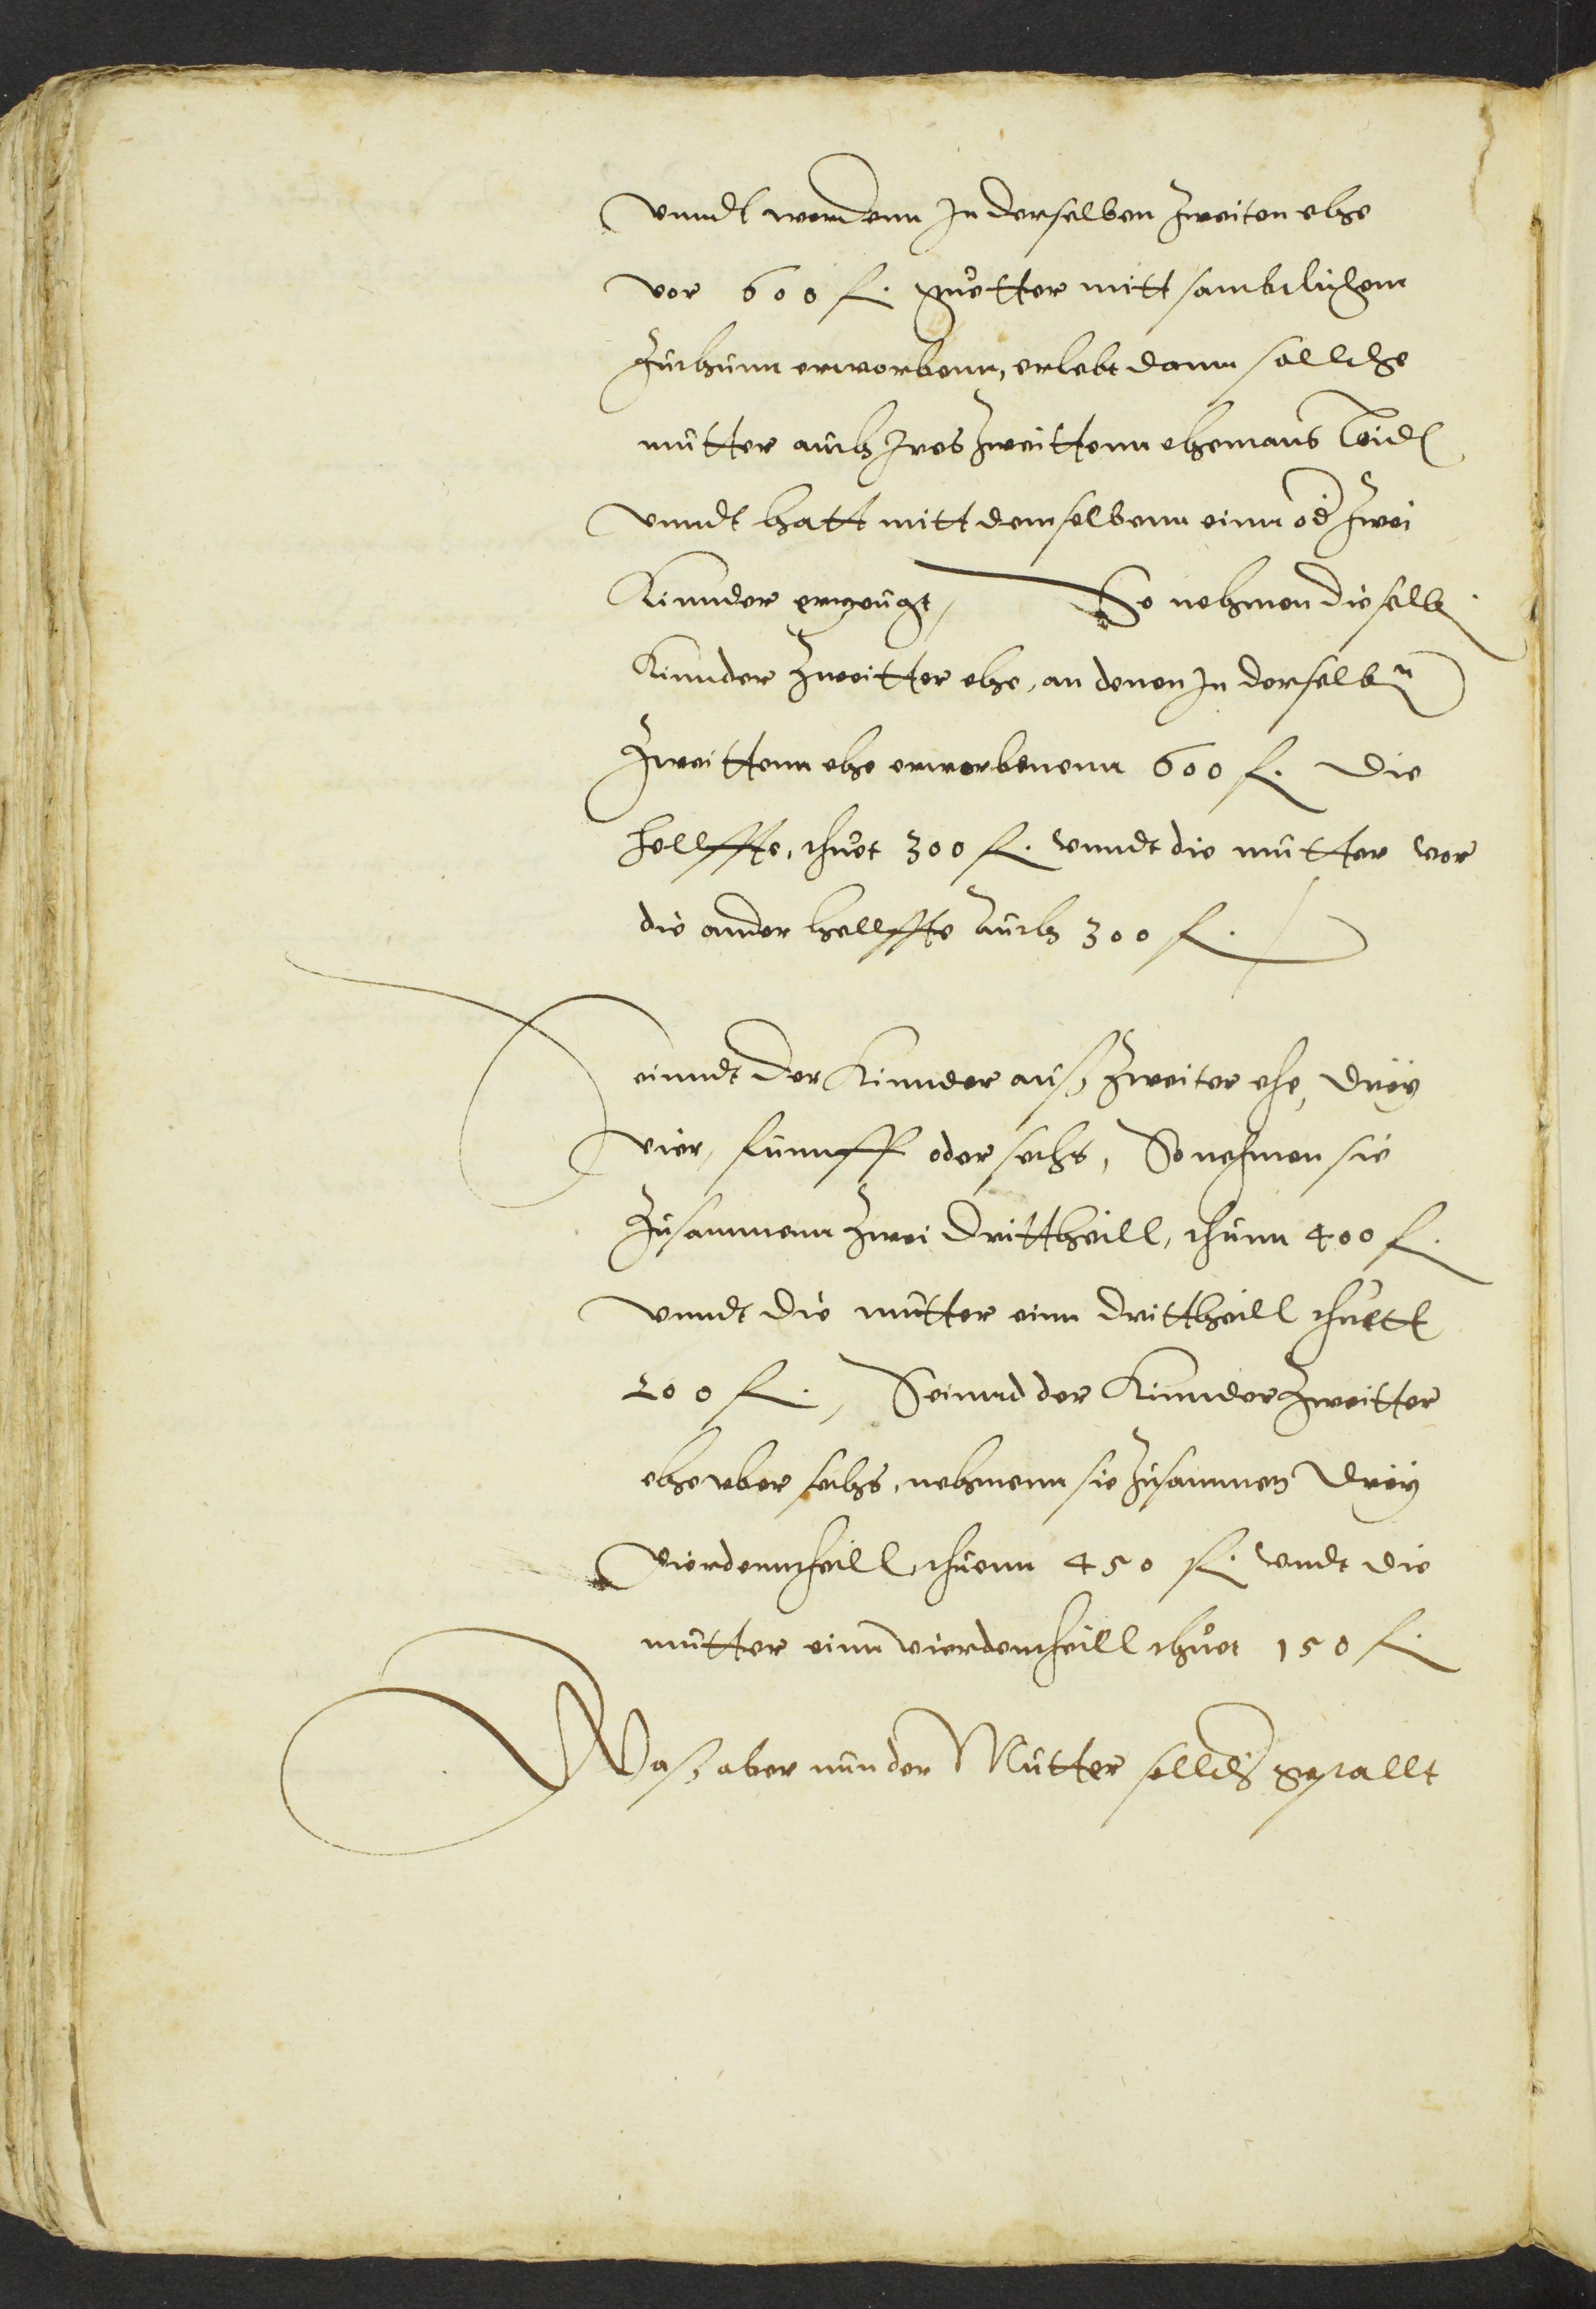 vnndt werdenn In derselben Zweiten ehe
vor 600 fl. guetter mitt sambtlichem
Zuthunn erworbenn, erlebt dann sollche
mutter auch Ires Zweittenn ehemans Leidt
vnndt hatt mitt demselbenn einn od Zwei
Kinnder erzeugt, So nehmen dieselb
Kinnder Zweitter ehe, an denen In derselben
Zweittenn ehe erworbenenn 600 fl. die
hellffte, thuet 300 fl. vnndt die mutter vor
die ander hellffte auch 300 fl.
Seinndt der Kinnder auß Zweiter ehe, drey
vier, fünnff oder sechs, So nehmen sie
Zusammenn Zwei drittheill, thunn 400 fl.
vnndt die mutter einn drittheill thuett
200 fl., Seinnd der Kinnder Zweitter
ehe vber sechs, nehmenn sie Zusammen drey
vierdenntheill, thuenn 450 fl. vndt die
mutter einn vierdentheill thuet 150 fl.
Waß aber nun der Mutter sollcher gestallt